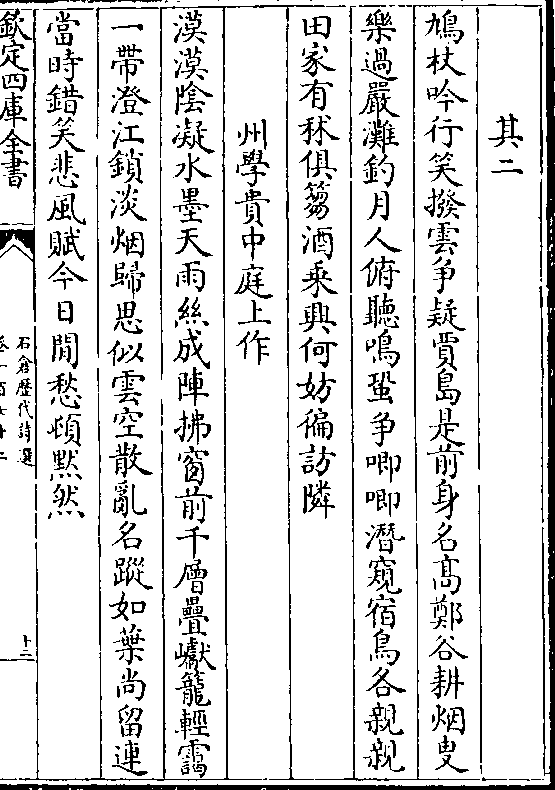 其二
鳩杖吟行笑撥雲争疑賈島是前身名髙鄭谷耕烟叟
樂過嚴灘釣月人俯聽鳴蛩争唧唧潛窺宿鳥各親親
田家有秫俱篘酒乘興何妨徧訪隣
州學貴中庭上作
漠漠陰凝水墨天雨絲成陣拂窗前千層疊巘籠輕靄
一帶澄江鎖淡烟歸思似雲空散亂名蹤如葉尚留連
當時錯笑悲風賦今日閒愁頓黙然
欽定四庫全書
石倉歴代詩選
十二